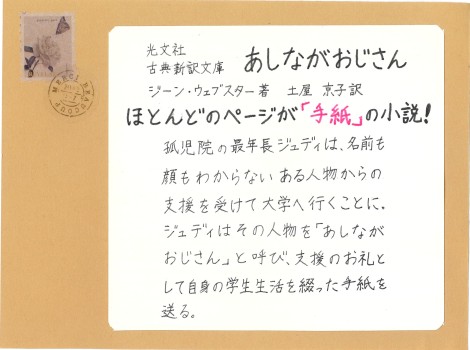 光文社
古典新訳文庫 あしながおじさん
ジーン・ウェブスター著 土屋 京子訳
ほとんどのページが「手紙」の小説!
孤児院の最年長ジュディは、名前も
顔もわからない ある人物からの
支援を受けて大学へ行くことに.
ジュディはその人物を「あしなが
おじさん」と呼び、支援のお礼と
して自身の学生生活を綴った手紙を
送る。